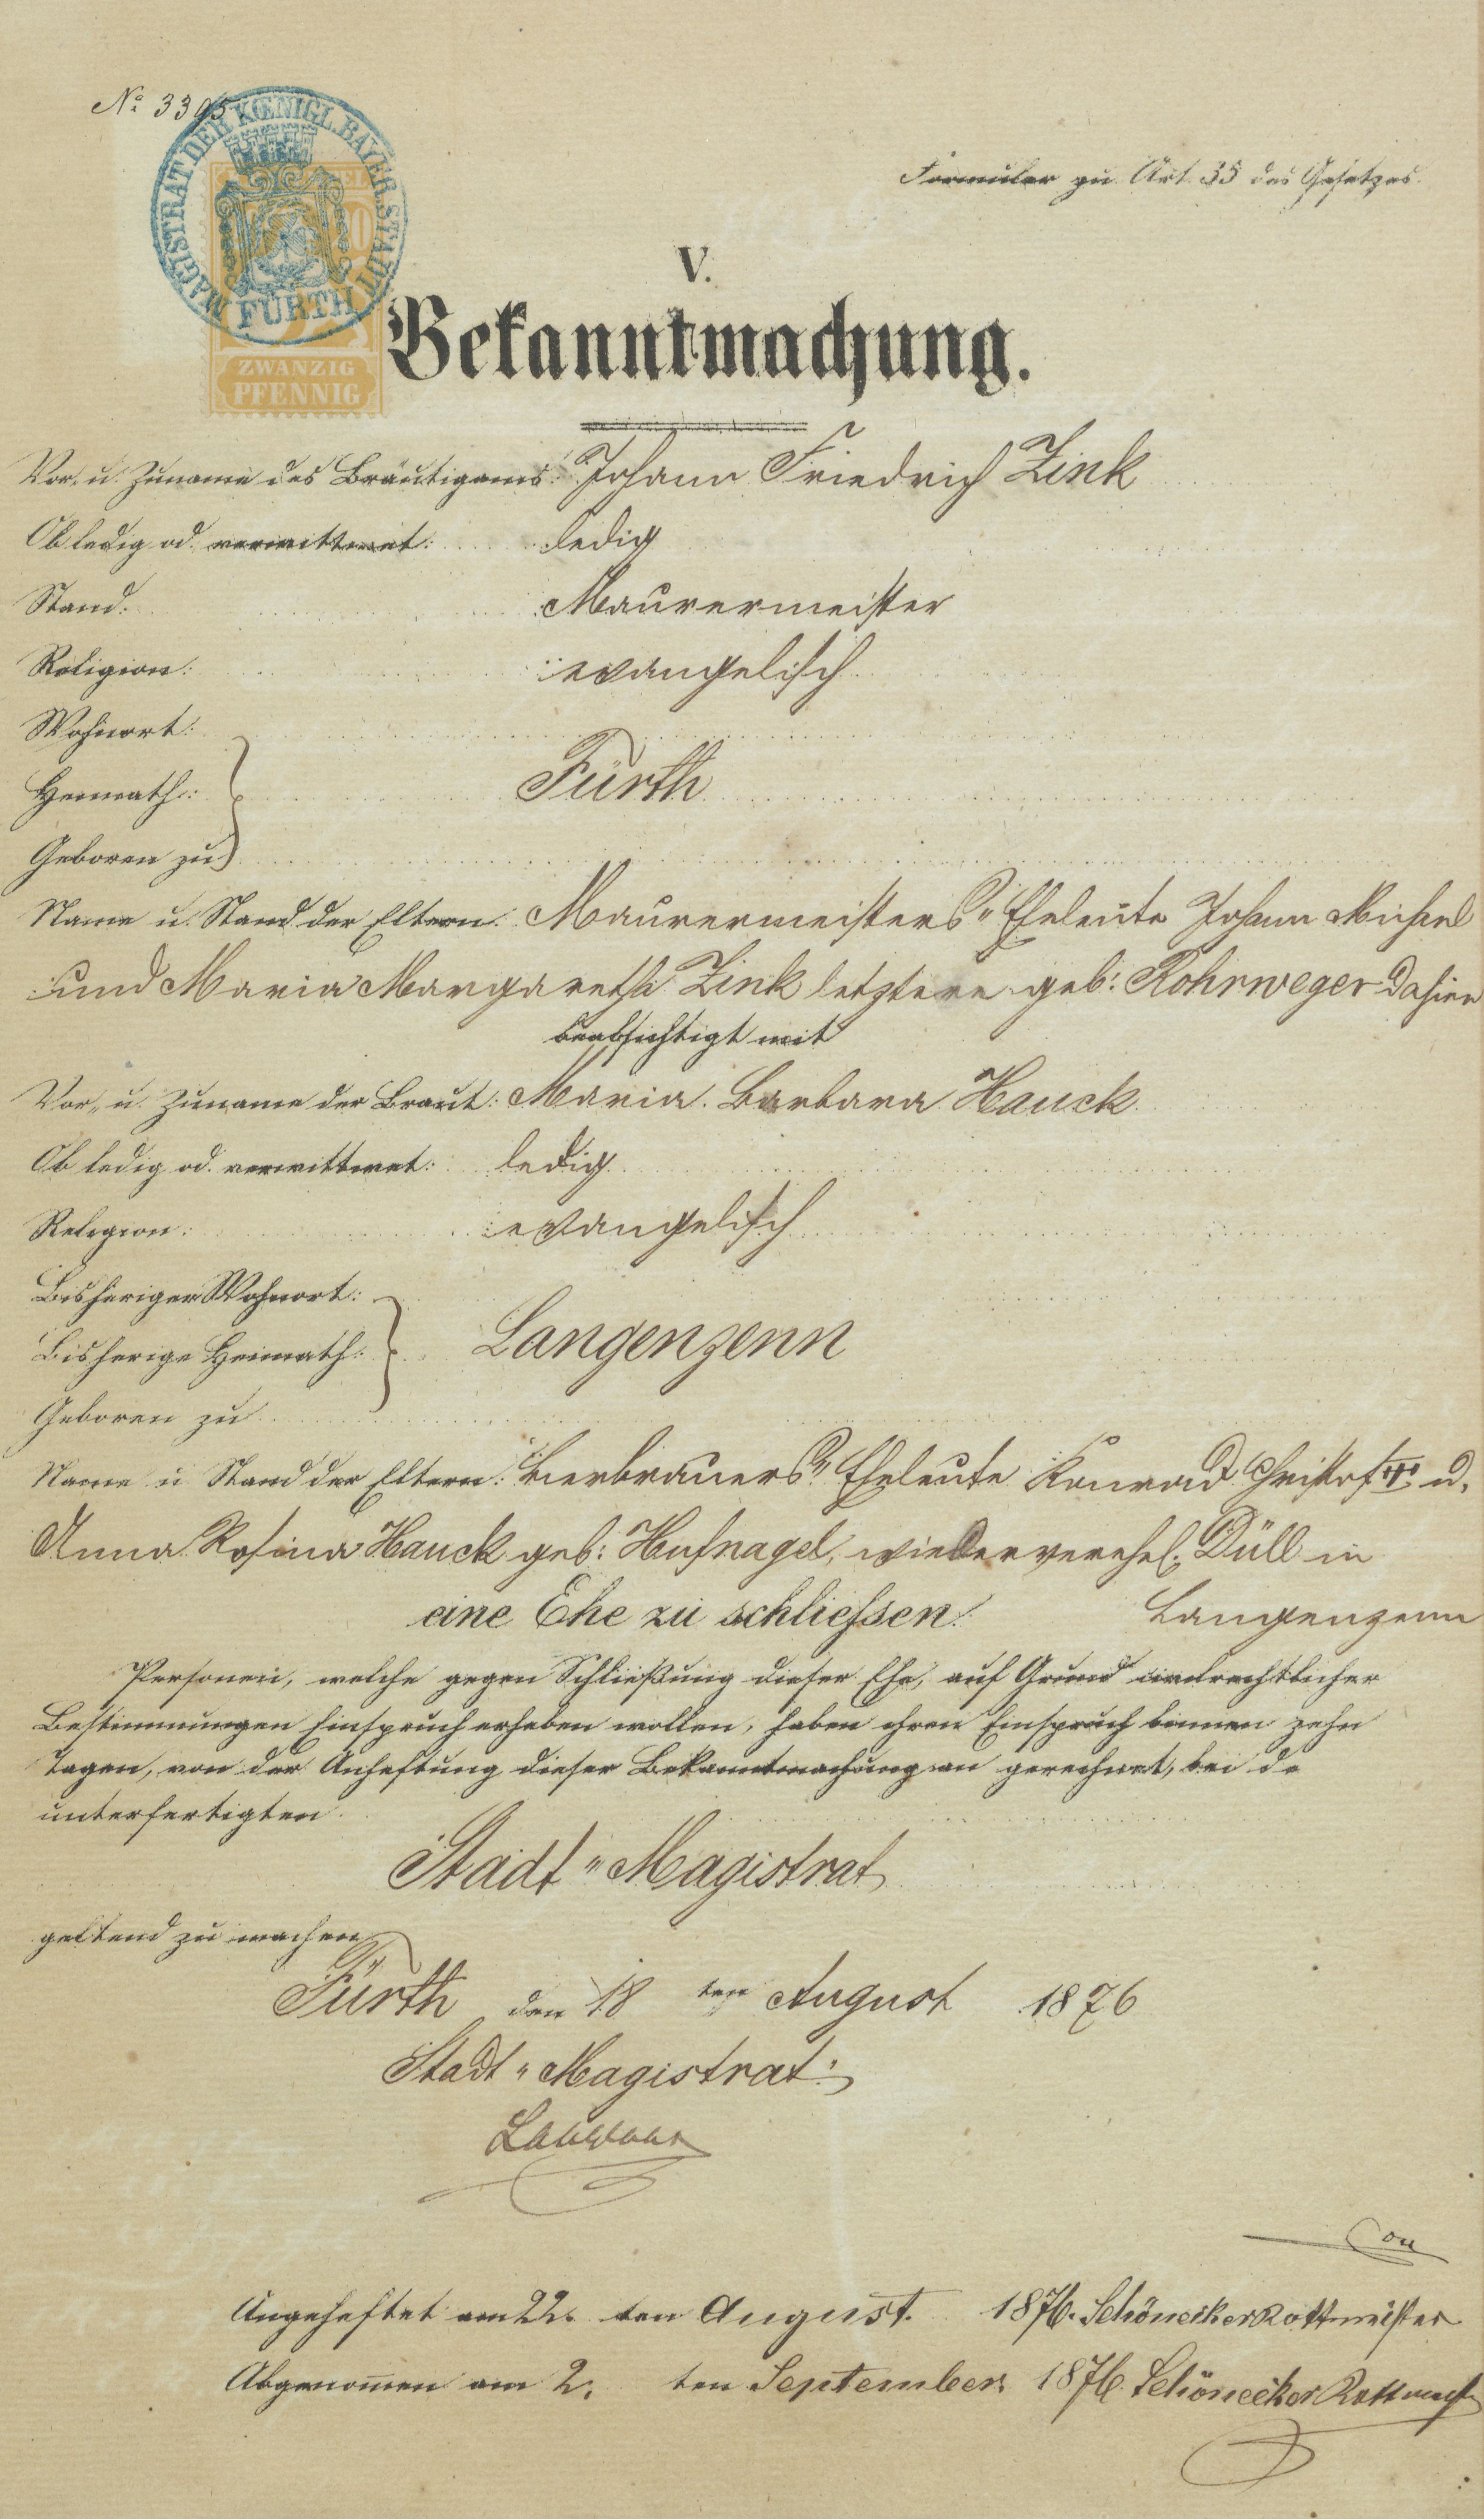 No 3395
MAGISTRAT DER KOENIGL. BAYER. STADT
FÜRTH
ZWANZIG
PFENNIG
Formular zu Art. 35 des Gesetzes.
V.
Bekanntmachung.
Vor. u. Zuname des Bräutigams: Johann Friedrich Zink
Ob ledig od. verwittwet: ledig
Stand: Maurermeister
Religion: evangelisch
Wohnort:
Heimath: Fürth
Geboren zu
Name u. Stand der Eltern: Maurermeisters" Eheleute Johann Michael
und Maria Margaretha Zink letztere geb: Rohrweger dahier
beabsichtigt mit
Vor- u. Zuname der Braut: Maria Barbara Hauck
Ob ledig od. verwittwet: ledig
Religion: evangelisch
Bisheriger Wohnort:
Bisherige Heimath: Langenzenn
Geboren zu
Name u Stand der Eltern: Bierbrauers" Eheleute Konrad Christof u.
Anna Rosina Hauck geb: Hufnagel, wiederverehel. Düll in
eine Ehe zu schliessen. Langenzenn
Personen, welche gegen Schließung dieser Ehe, auf Grund civilrechtlicher
Bestimmungen Einspruch erheben wollen, haben ihren Einspruch binnen zehn
Tagen, von der Anheftung dieser Bekanntmachung an gerechnet, bei de
unterfertigten
Stadt" Magistrat
geltend zu machen
Fürth den 18 ten August 1876
Stadt" Magistrat:
Angeheftet am 22. ten August. 1876. Schönecker Rottmeister
Abgenom̄en am 2. ten September. 1876 Schönecker Rottmeist